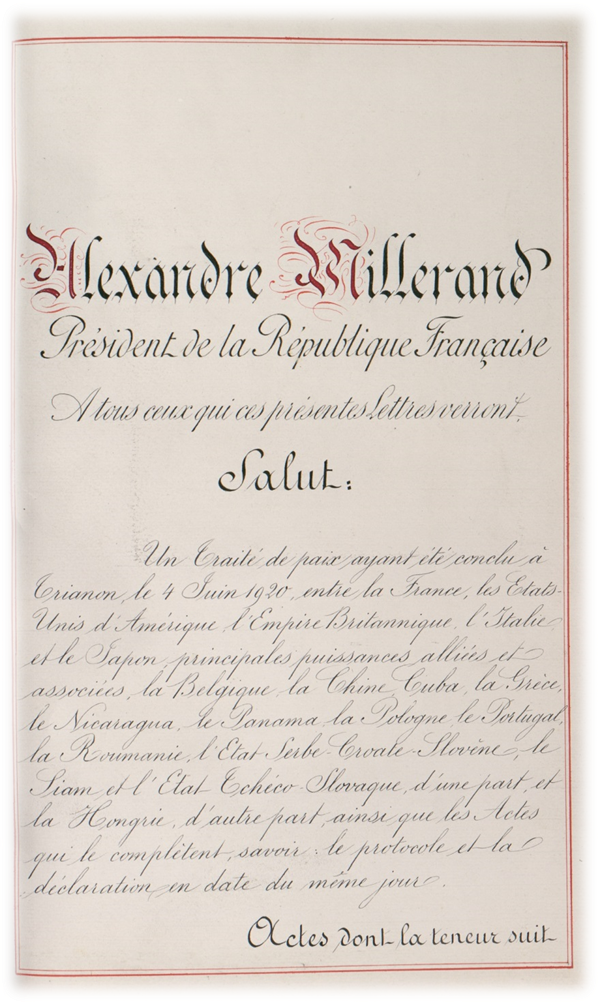 Alexandre Millerand
Président de la République Française
A tous ceux qui ces présentes Lettres verront
Salut:
Un Traité de paix ayant été conclu à
Trianon, le 4 Juin 1920, entre la France, les Etats-
Unis d'Amérique, l'Empire Britannique, l'Italie
et le Japon, principales puissances alliées et
associées, la Belgique, la Chine, Cuba, la Grèce,
le Nicaragua, le Panama, la Pologne, le Portugal,
la Roumanie, l'Etat Serbe-Croate-Slovène, le
Siam et l'Etat Tchéco-Slovaque, d'une part, et
la Hongrie, d'autre part, ainsi que les Actes
qui le complètent, savoir: le protocole et la
déclaration en date du même jour.
Actes dont la teneur suit